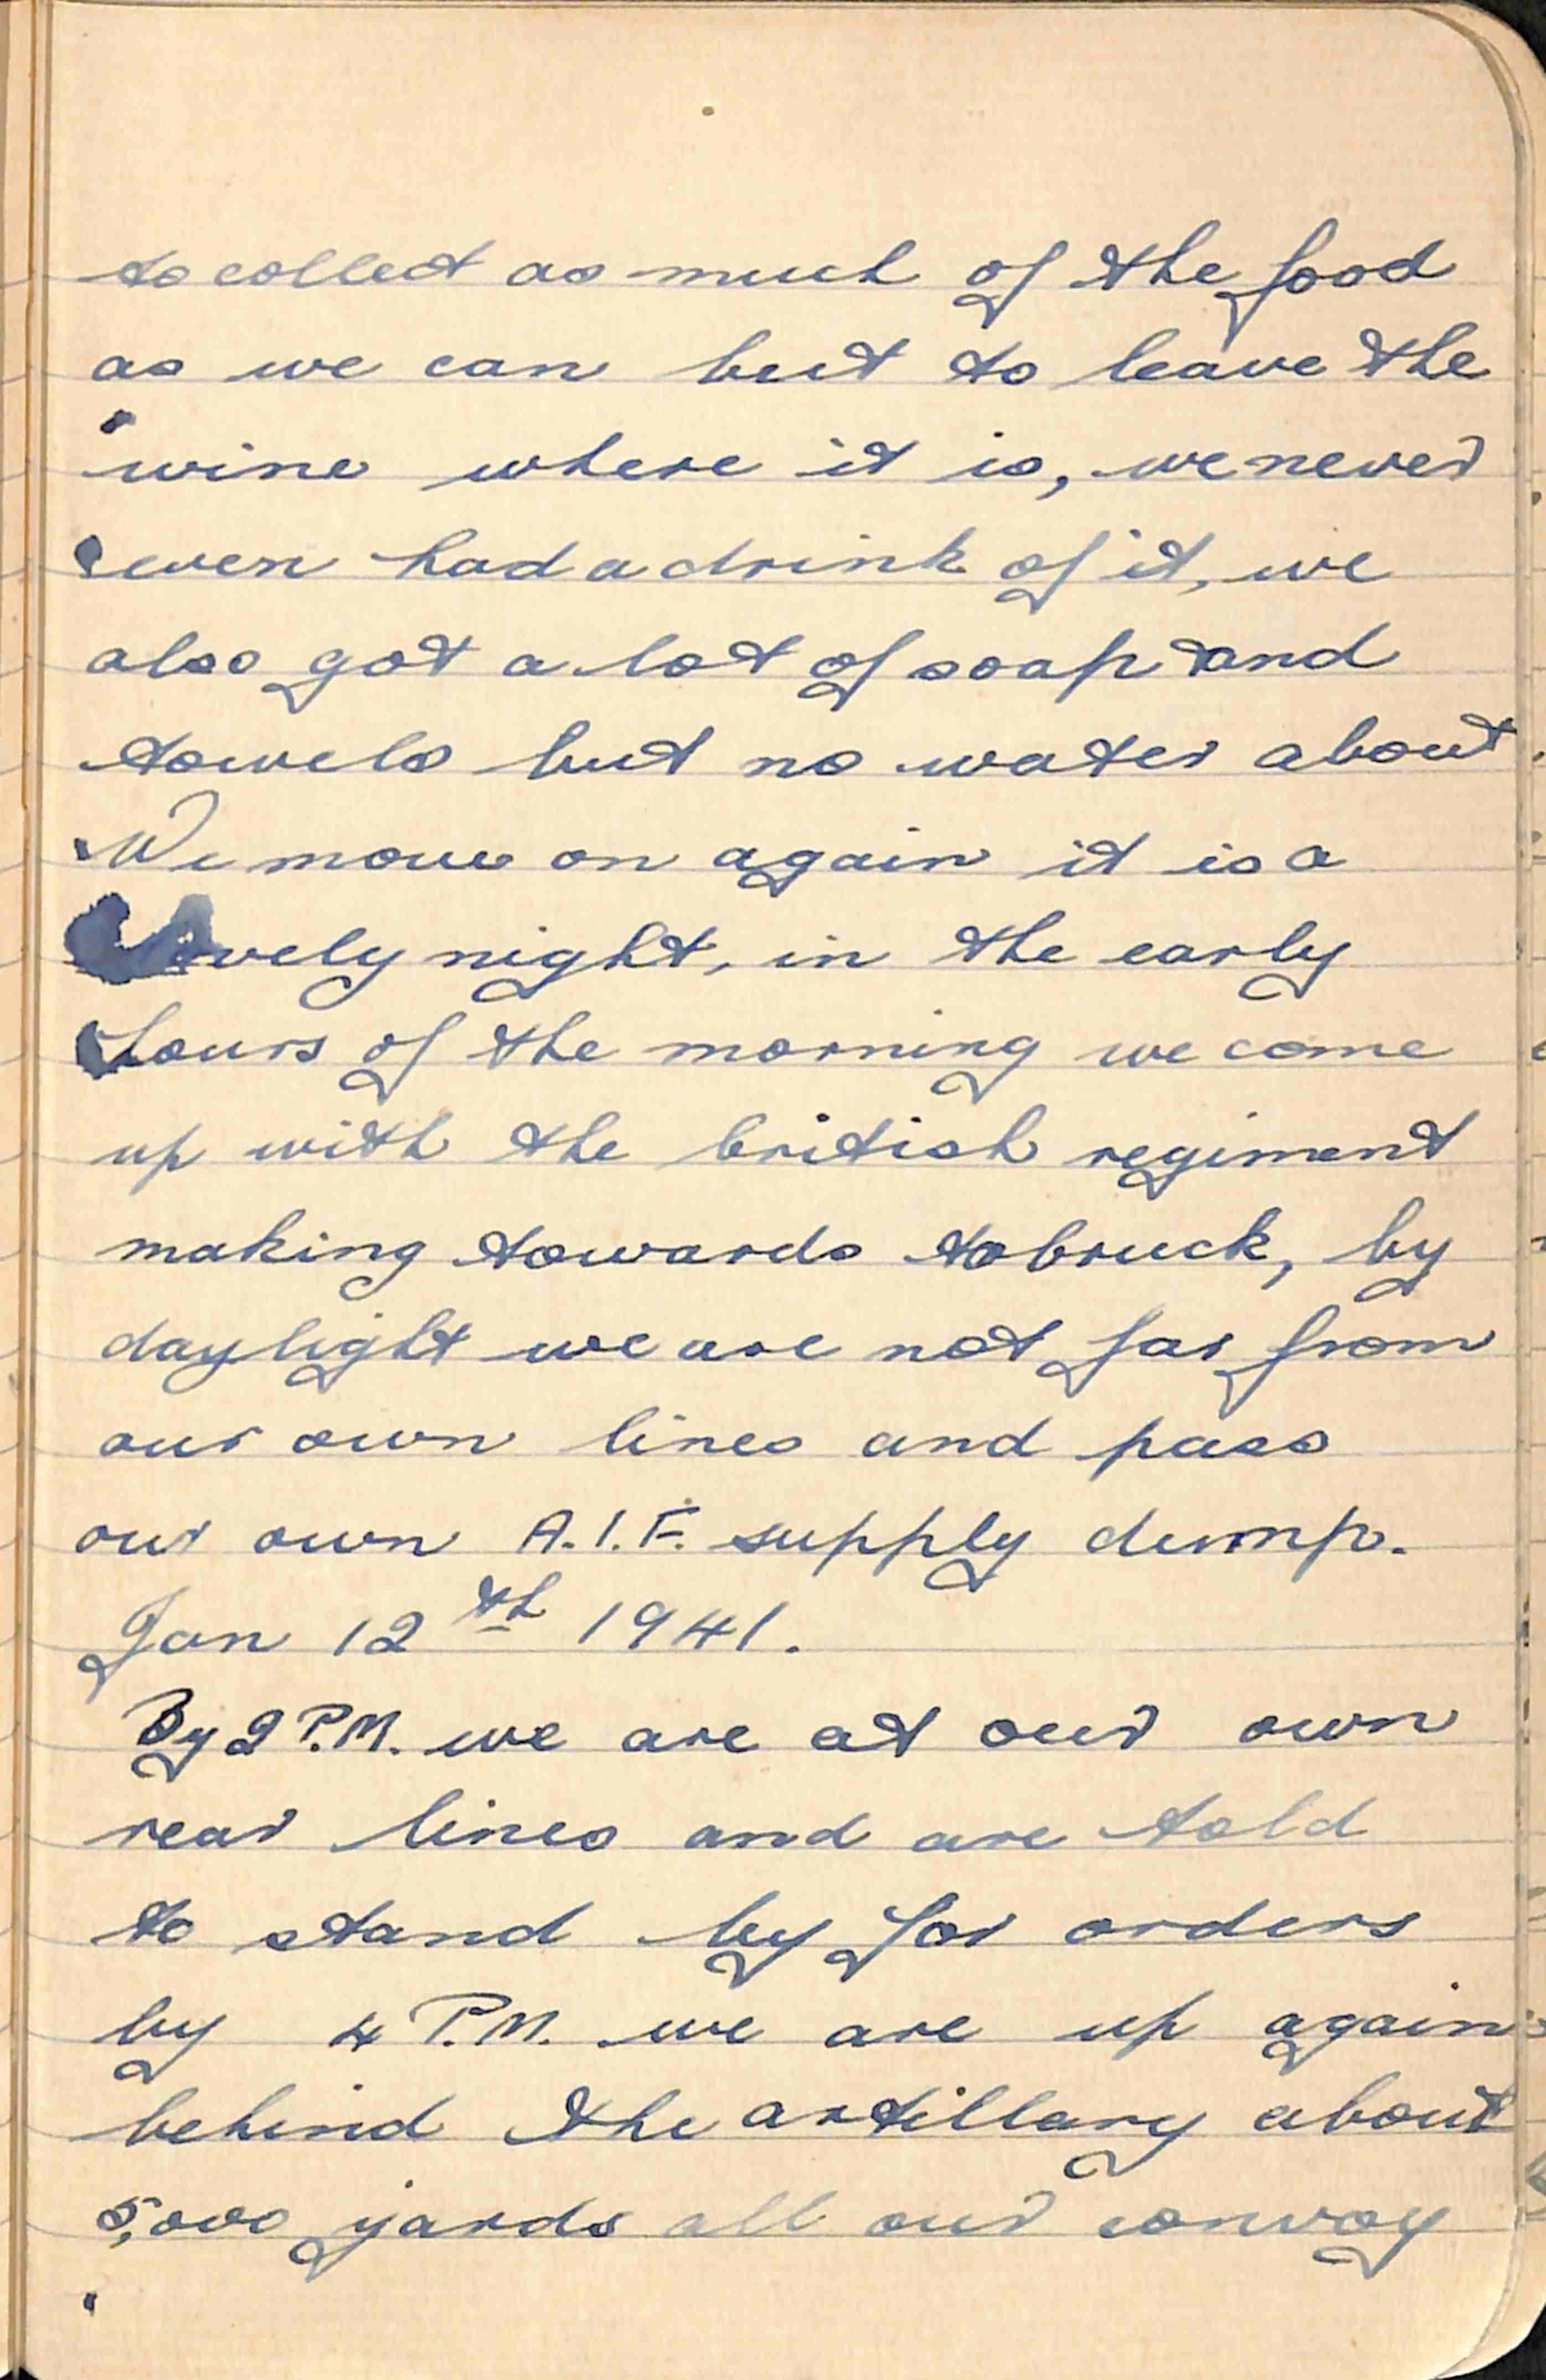 to collect as much of the food
as we can but to leave the
wine where it is, we never
even had a drink of it, we
also got a lot of soap and
towels but no water about
We move on again it is a
lovely night, in the early
hours of the morning we come
up with the british regiment
making towards tobruck, by
daylight we are not far from
our own lines and pass
our own A.I.F. supply dump.
Jan 12th 1941.
By 2 P.M. we are at our own
rear lines and are told
to stand by for orders
by 4 P.M. we are up again
behind the artillary about
5,000 yards all our convoy